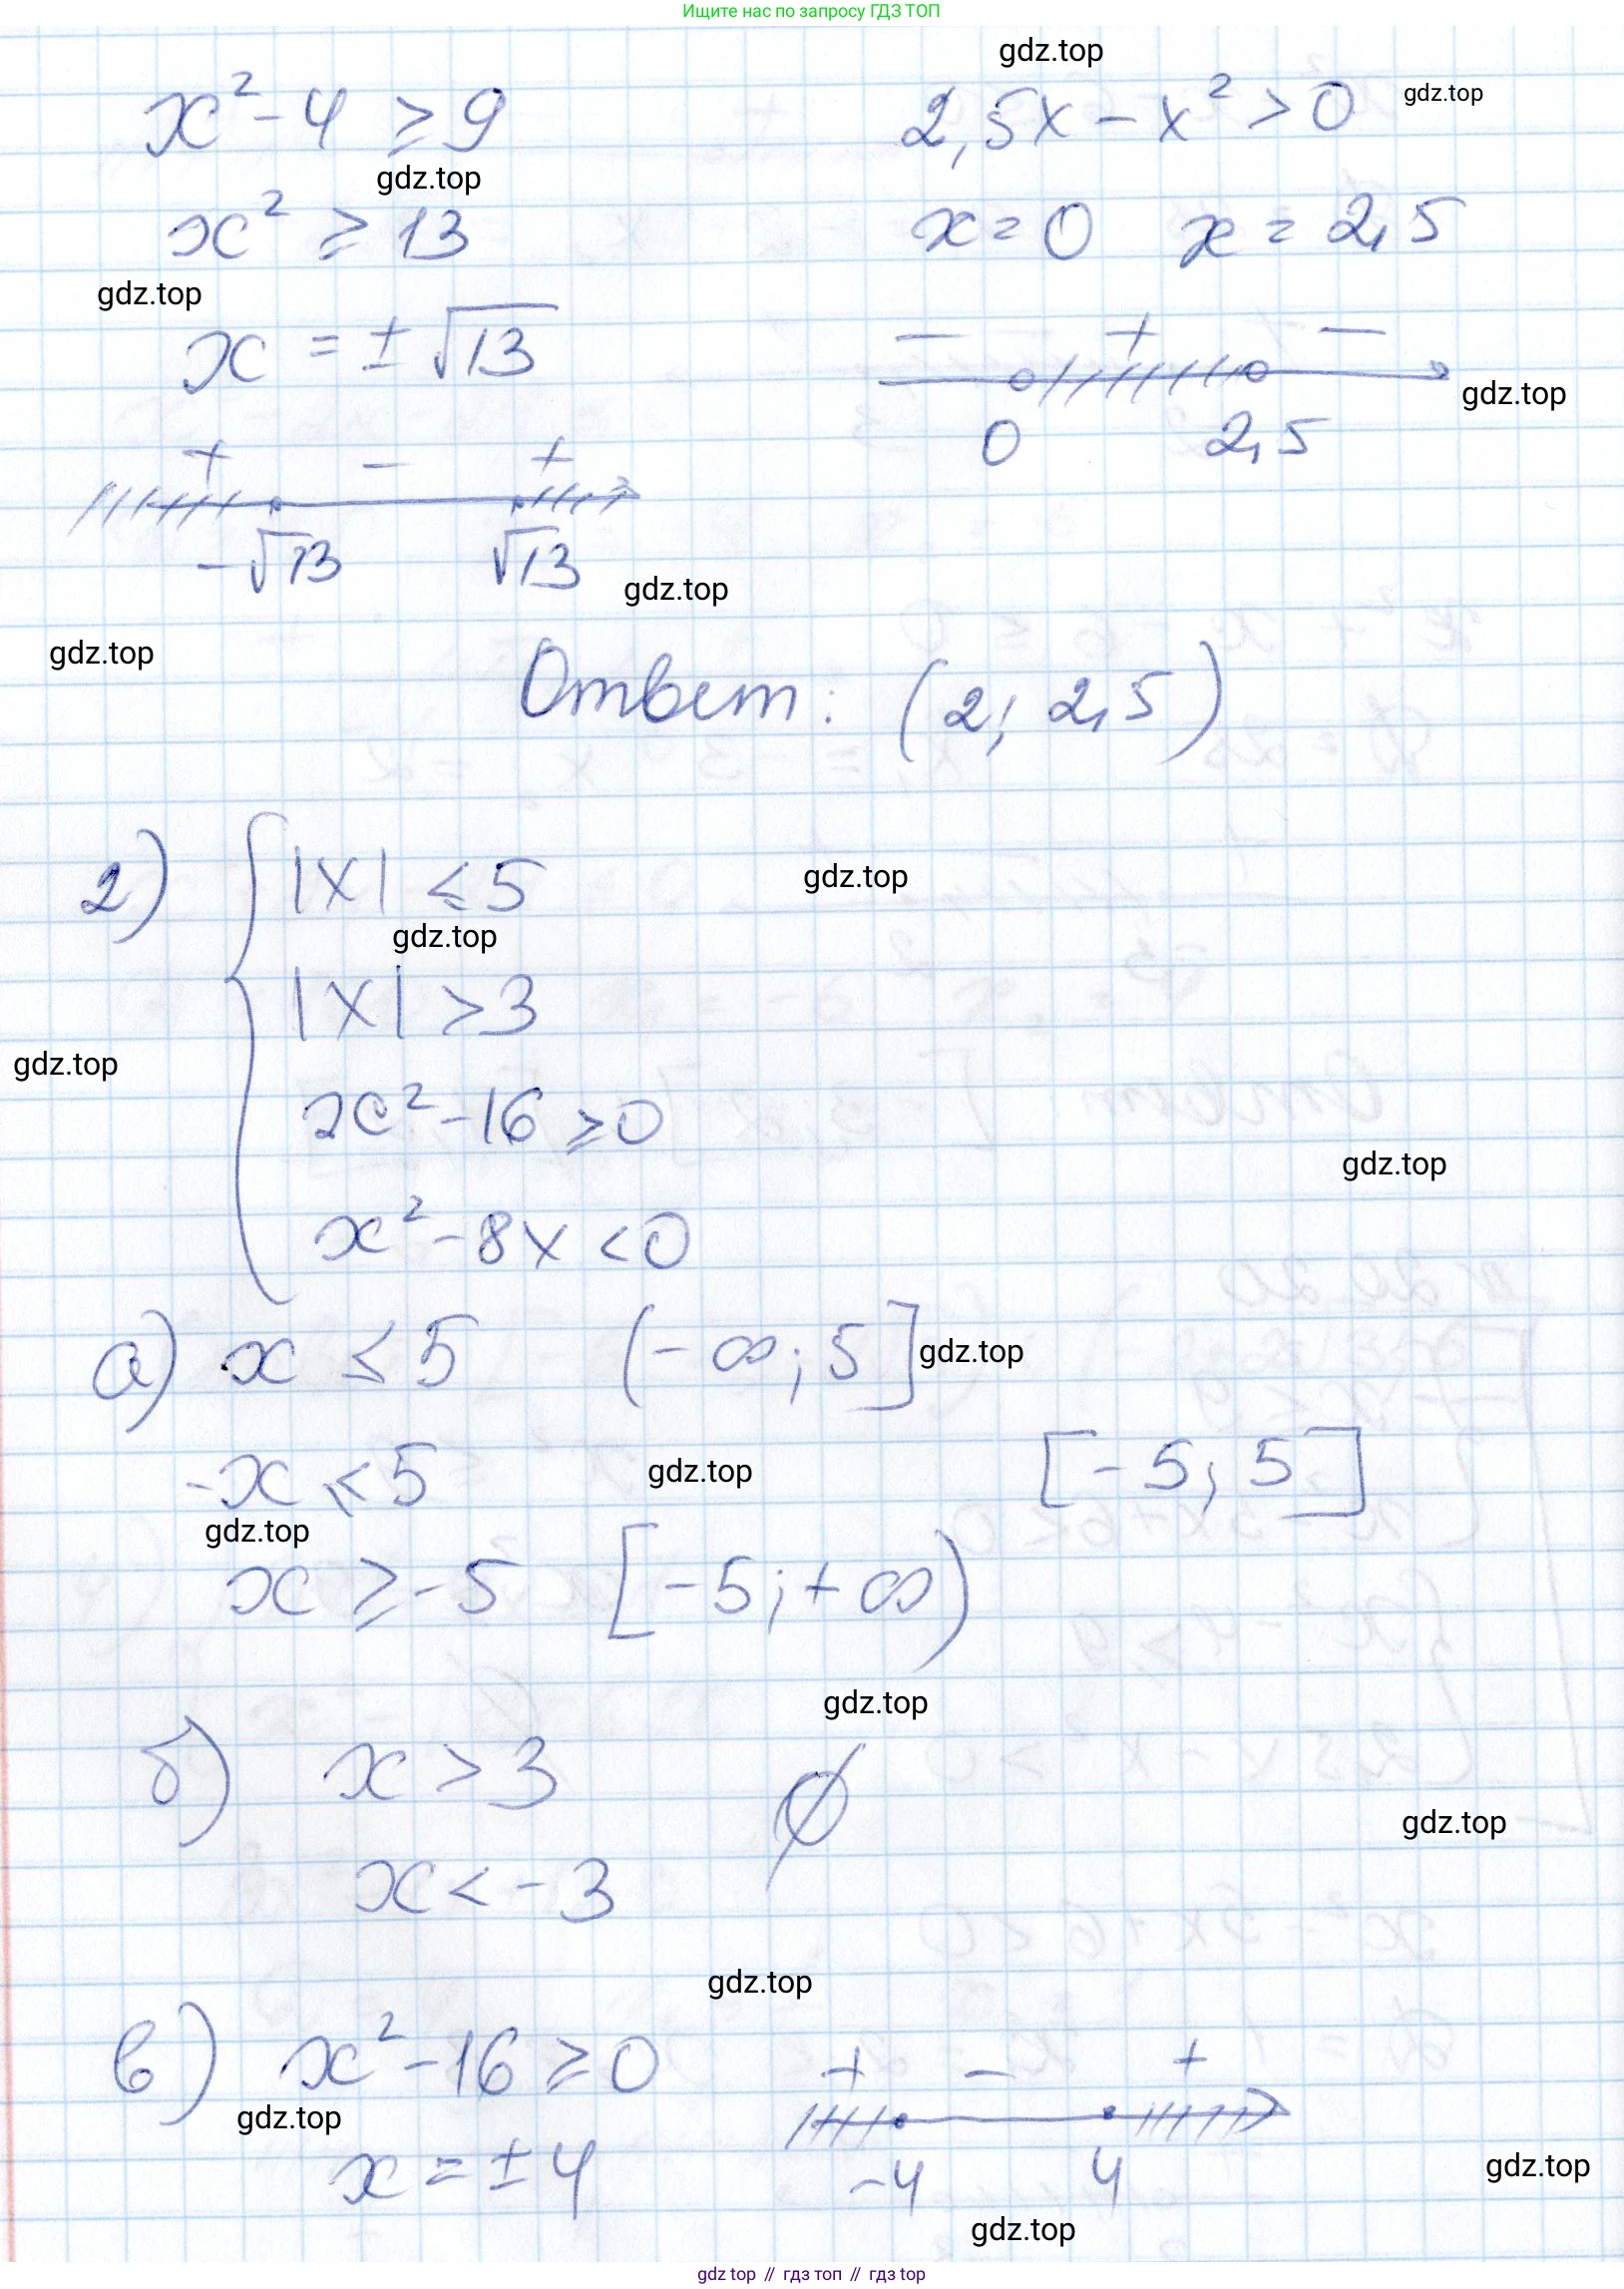 Ищите нас по запросу ГДЗ ТОП
gdz.top
x² - 4 ≥ 9
2,5x - x² > 0
gdz.top
gdz.top
x² ≥ 13
x = 0 x = 2,5
gdz.top
x = ± √13
- + -
gdz.top
0 2,5
+ - +
-√13 √13
gdz.top
gdz.top
Ответ: (2; 2,5)
2) { |x| ≤ 5
gdz.top
gdz.top
|x| > 3
gdz.top
x² - 16 ≥ 0
gdz.top
x² - 8x < 0
а) x ≤ 5 (-∞; 5]
gdz.top
-x ≤ 5
gdz.top
[-5; 5]
gdz.top
x ≥ -5 [-5; +∞)
gdz.top
б) x > 3 ∅
gdz.top
x < -3
gdz.top
в) x² - 16 ≥ 0
+ - +
gdz.top
x = ± 4
-4 4
gdz.top
gdz.top
gdz top // гдз топ // гдз top